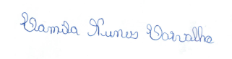 Camila Nunes Carvalho